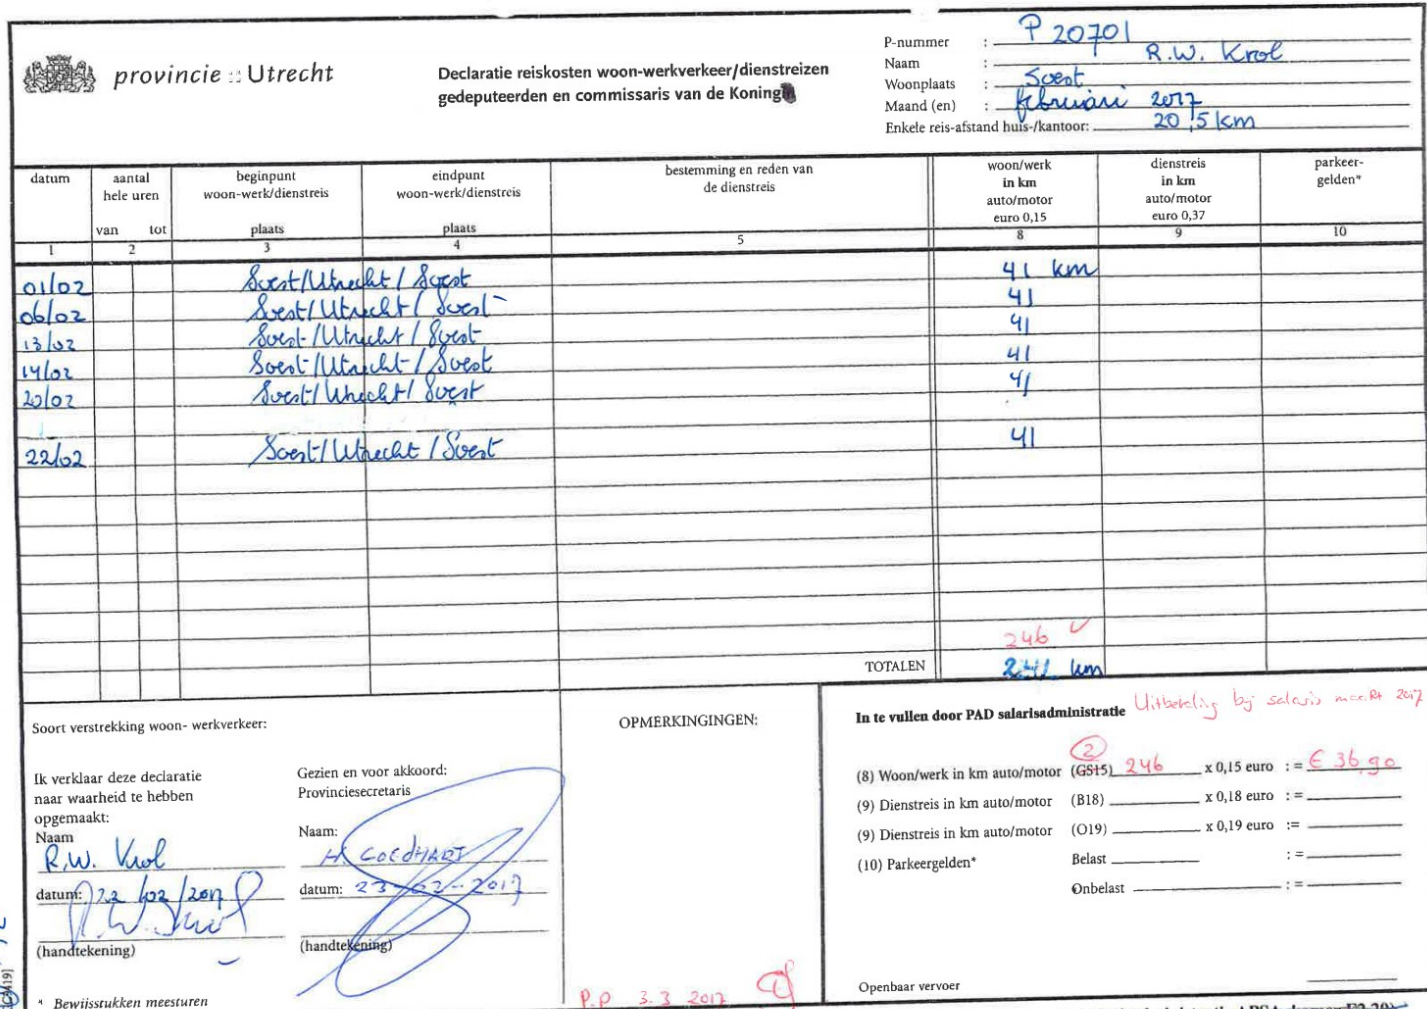 provincie :: Utrecht
Declaratie reiskosten woon-werkverkeer/dienstreizen
gedeputeerden en commissaris van de Koningin
P-nummer : P 20701
Naam : R.W. Krol
Woonplaats : Soest
Maand (en) : februari 2017
Enkele reis-afstand huis-/kantoor: 20,5 km
datum aantal hele uren van tot beginpunt woon-werk/dienstreis plaats eindpunt woon-werk/dienstreis plaats bestemming en reden van de dienstreis woon/werk in km auto/motor euro 0,15 dienstreis in km auto/motor euro 0,37 parkeer-gelden*
1 2 3 4 5 8 9 10
01/02 Soest/Utrecht / Soest 41 km
06/02 Soest/Utrecht / Soest 41
13/02 Soest/Utrecht / Soest 41
14/02 Soest/Utrecht / Soest 41
20/02 Soest/Utrecht/ Soest 41
22/02 Soest/Utrecht / Soest 41
246
TOTALEN 241 km
Soort verstrekking woon- werkverkeer:
Ik verklaar deze declaratie
naar waarheid te hebben
opgemaakt:
Naam
R.W. Krol
datum: 22/02/2017
(handtekening)
* Bewijsstukken meesturen
Gezien en voor akkoord:
Provinciesecretaris
Naam:
H. GOEDHART
datum: 23-02-2017
(handtekening)
OPMERKINGINGEN:
P.P 3.3 2017
In te vullen door PAD salarisadministratie Uitbetaling bij salaris maart 2017
2
(8) Woon/werk in km auto/motor (GS15) 246 x 0,15 euro := € 36,90
(9) Dienstreis in km auto/motor (B18) x 0,18 euro :=
(9) Dienstreis in km auto/motor (O19) x 0,19 euro :=
(10) Parkeergelden* Belast :=
Onbelast :=
Openbaar vervoer